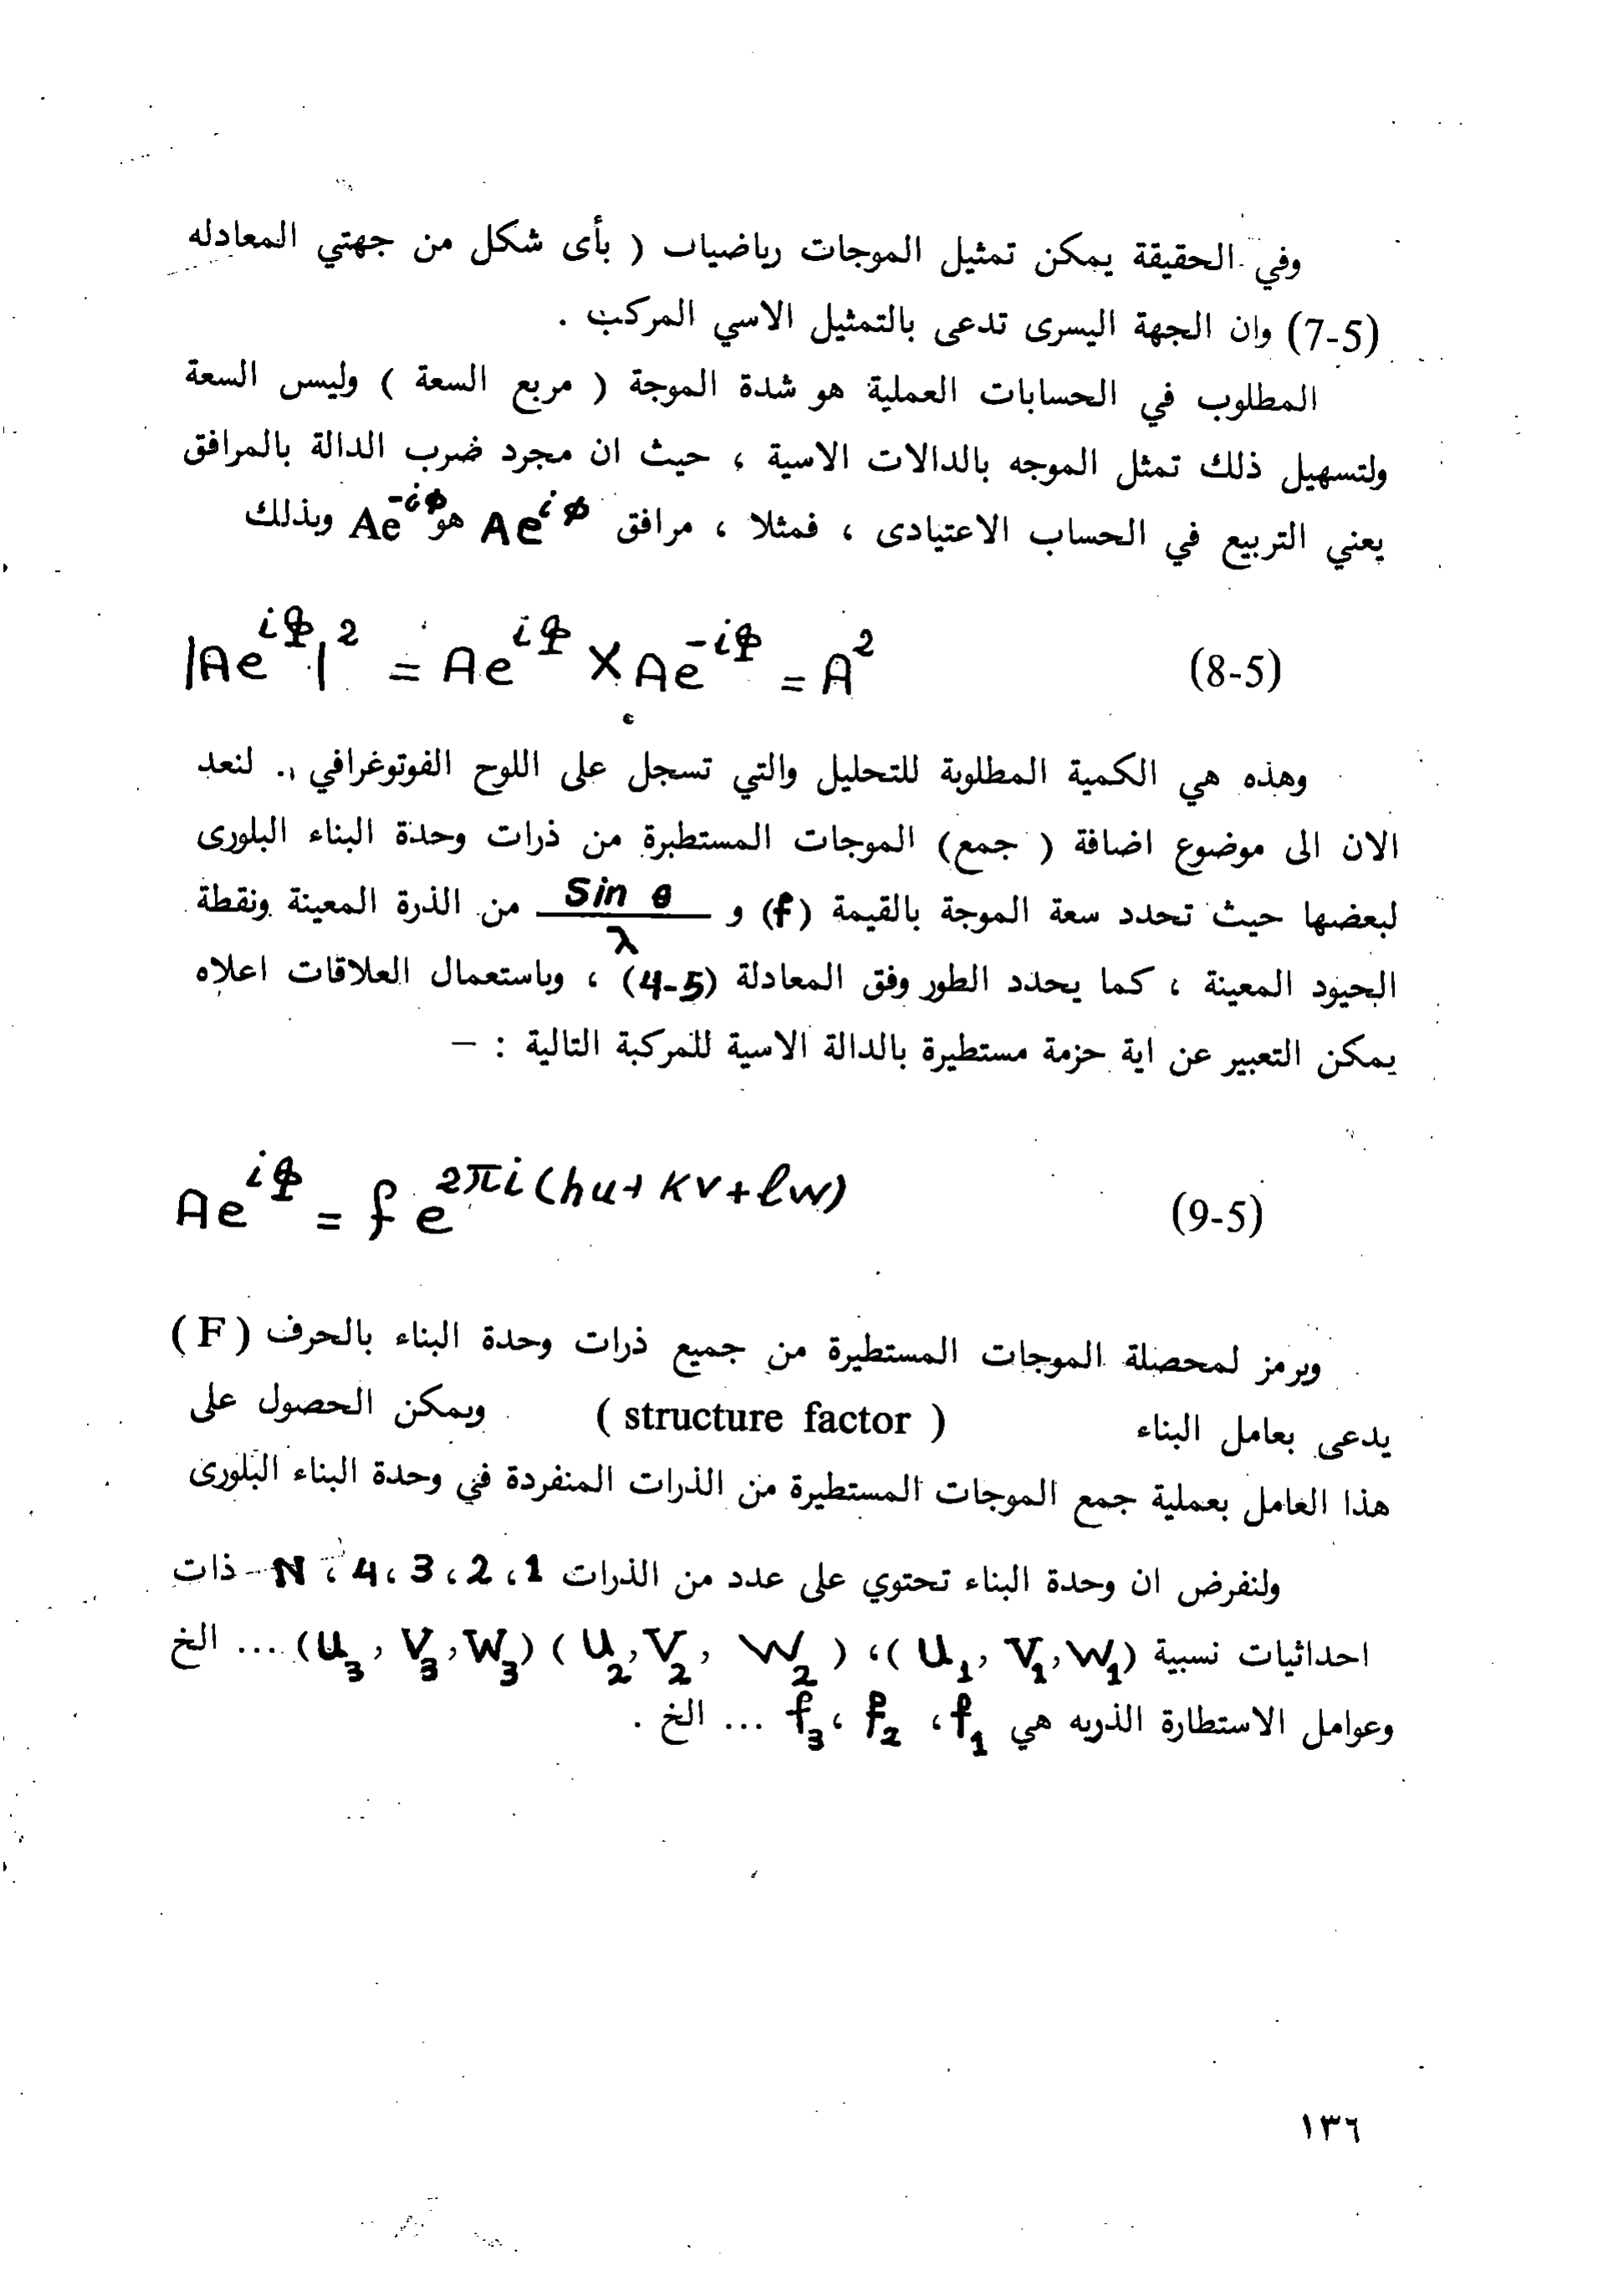 وفي الحقيقة يمكن تمثيل الموجات رياضياب ( بأى شكل من جهتي المعادله
(7-5) وان الجهة اليسرى تدعى بالتمثيل الاسي المركب .
المطلوب في الحسابات العملية هو شدة الموجة ( مربع السعة ) وليس السعة
ولتسهيل ذلك تمثل الموجه بالدالات الاسية ، حيث ان مجرد ضرب الدالة بالمرافق
يعني التربيع في الحساب الاعتيادى ، فمثلا ، مرافق Ae^{iφ} هو Ae^{-iφ} وبذلك
|Ae^{iφ}|^2 = Ae^{iφ} X Ae^{-iφ} = A^2 (8-5)
وهذه هي الكمية المطلوبة للتحليل والتي تسجل على اللوح الفوتوغرافي .. لنعد
الان الى موضوع اضافة ( جمع) الموجات المستطبرة من ذرات وحدة البناء البلورى
لبعضها حيث تحدد سعة الموجة بالقيمة (f) و Sin θ / λ من الذرة المعينة ونقطة
الحيود المعينة ، كما يحدد الطور وفق المعادلة (4-5) ، وباستعمال العلاقات اعلاه
يمكن التعبير عن اية حزمة مستطيرة بالدالة الاسية للمركبة التالية : –
Ae^{iφ} = f e^{2πi(hu+kv+lw)} (9-5)
ويرمز لمحصلة الموجات المستطيرة من جميع ذرات وحدة البناء بالحرف ( F )
يدعى بعامل البناء ( structure factor ) ويمكن الحصول على
هذا العامل بعملية جمع الموجات المستطيرة من الذرات المنفردة في وحدة البناء البلورى
ولنفرض ان وحدة البناء تحتوي على عدد من الذرات 1 ، 2 ، 3 ، 4 ، N ذات
احداثيات نسبية (u₁, v₁, w₁) ، (u₂, v₂, w₂) (u₃, v₃, w₃) ... الخ
وعوامل الاستطارة الذريه هي f₁ ، f₂ ، f₃ ... الخ .
١٣٦